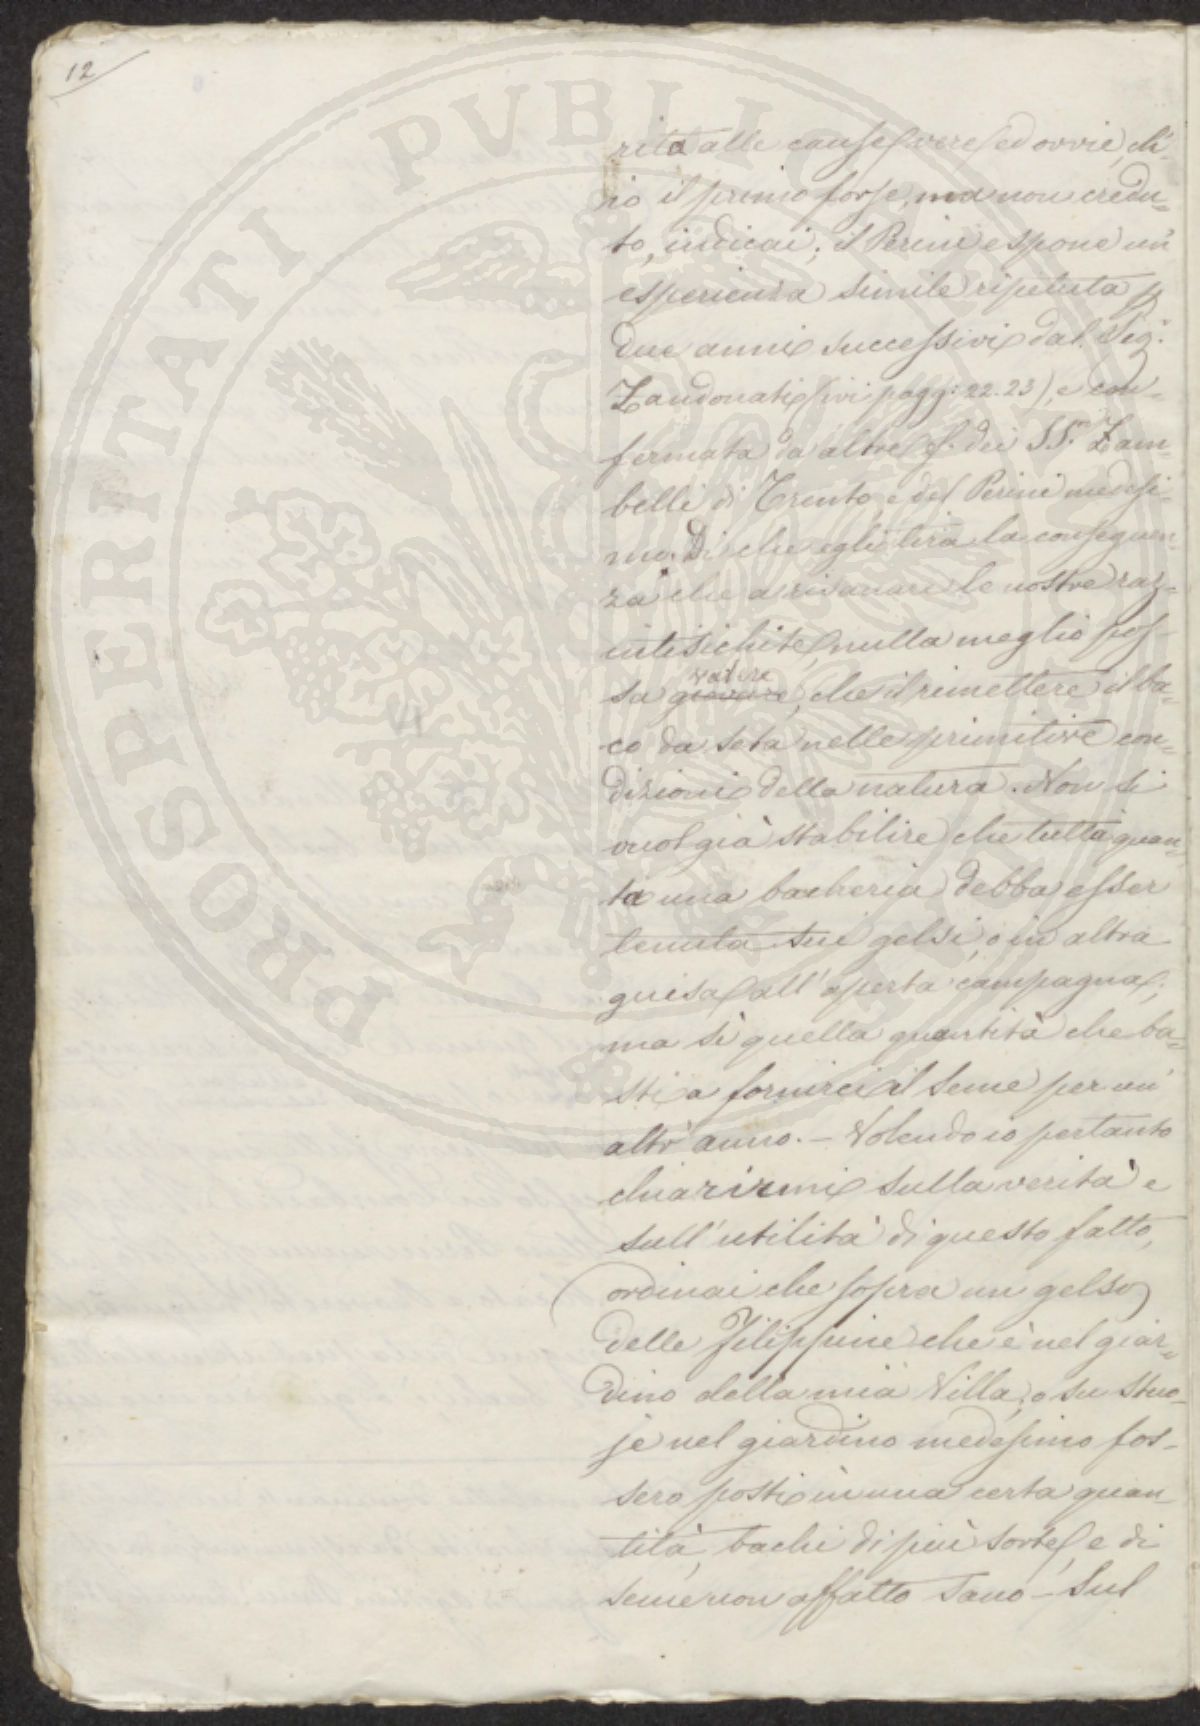 12
rità alle cause vere ed ovvie, ch'
io il primo forse, ma non credu=
to, indicai; il Perini espone un'
esperienza simile ripetuta p
due anni successivi dal Sig.r
Zandonati (ivi pagg: 22-23), e con=
fermata da altre f. dei SS.ri Zam=
belli di Trento, e del Perini medesi=
mo. Di che egli tira la conseguen=
za che a risanare le nostre raz=
intisichite, nulla meglio pos-
valere
sa giovare, che il rimettere il ba=
co da seta nelle primitive con=
dizioni della natura. Non si
vuol già stabilire che tutta quan=
ta una bacheria debba esser
tenuta sui gelsi, o in altra
guisa all'aperta campagna;
ma sì quella quantità che ba=
sti a fornirci il seme per un'
altr'anno. — Volendo io pertanto
chiarirmi sulla verità e
sull'utilità di questo fatto,
ordinai che sopra un gelso
delle Filippine che è nel giar=
dino della mia Villa, o su stuo=
je nel giardino medesimo fos-
sero posti in una certa quan=
tità, bachi di più sorte, e di
seme non affatto sano — Sul
PROSPERITATI PUBLICAE